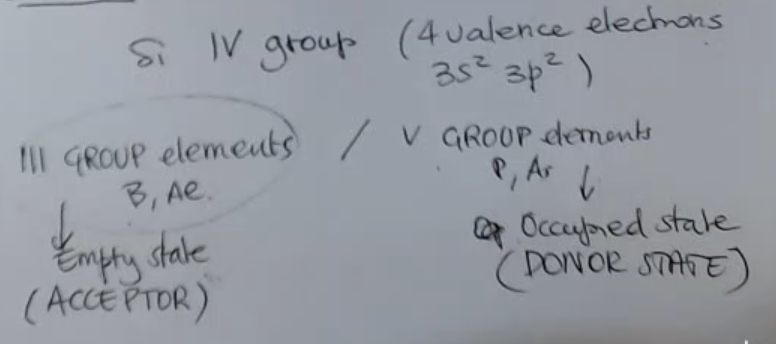 Si IV group (4 valence electrons
3s² 3p²)
III GROUP elements / V GROUP elements
B, Al. P, As
Empty state Occupied state
(ACCEPTOR) (DONOR STATE)